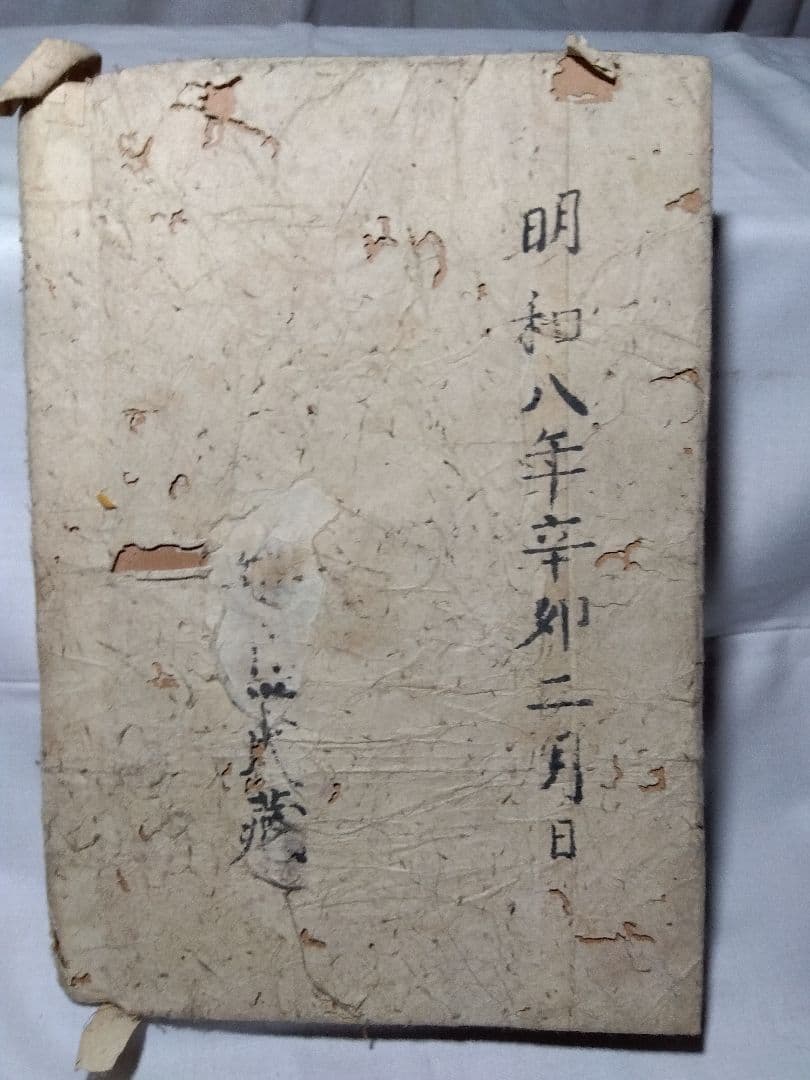 明和八年辛卯二月日
藏